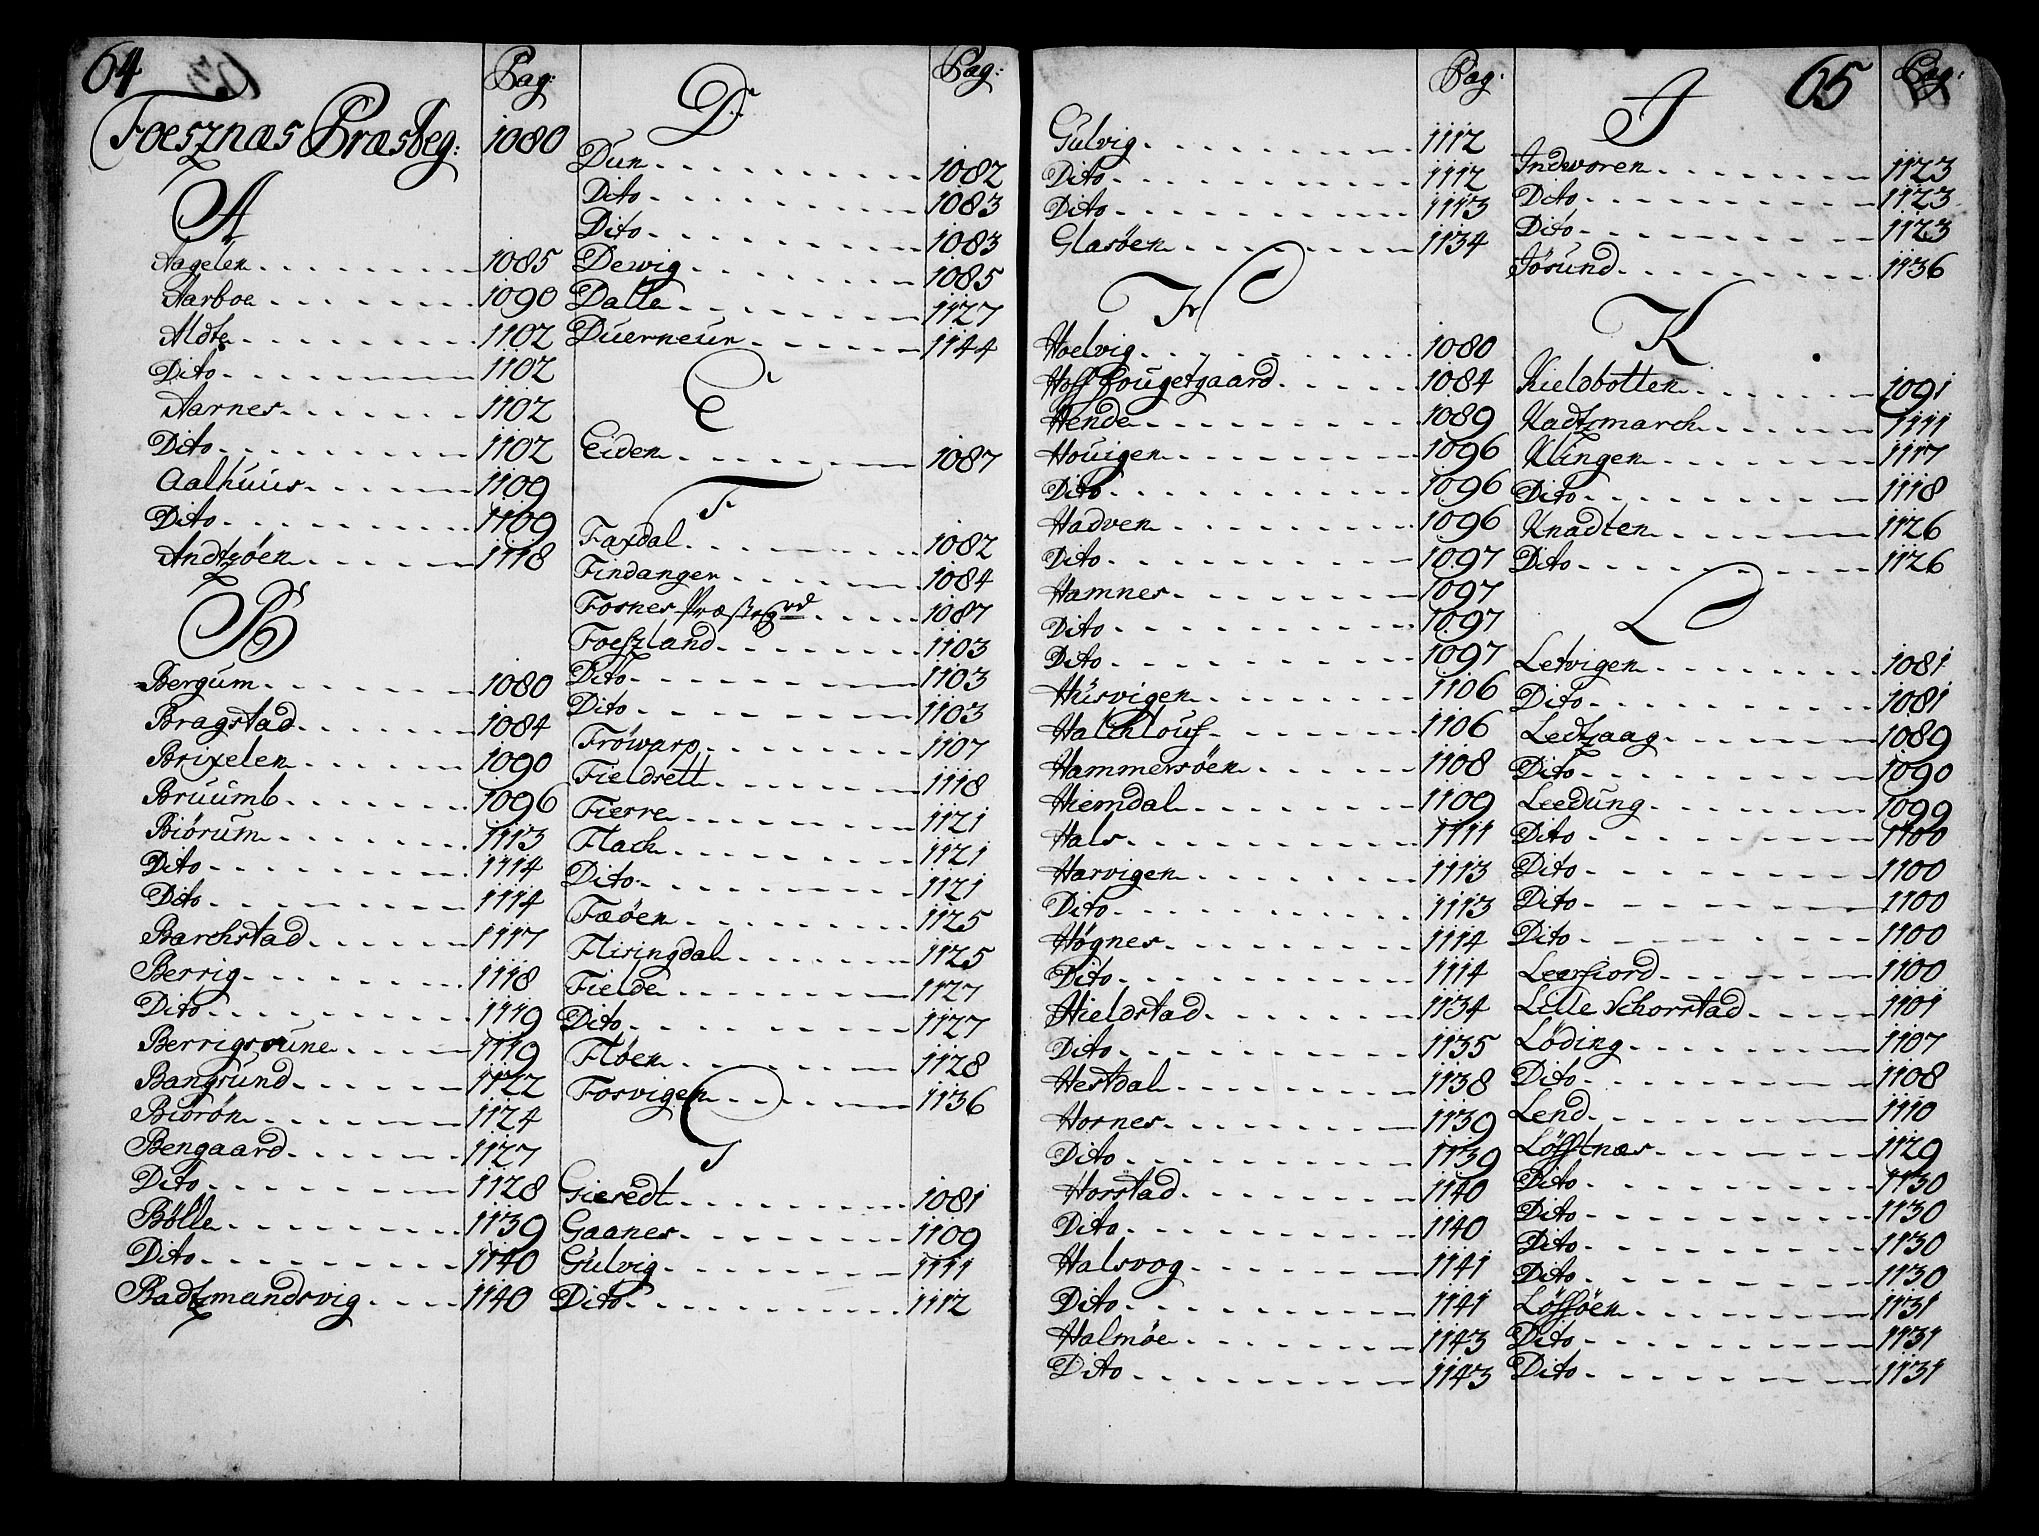 64
Pag:
Foesznæs Præsteg: 1080
A
Aagelen 1085
Aarboe 1090
Aldte 1102
Dito 1102
Aarnes 1102
Dito 1102
Aalhuus 1109
Dito 1109
Andtzöen 1118
B
Bergum 1080
Bragstad 1084
Brixelen 1090
Bruumb 1096
Biörum 1113
Dito 1114
Dito 1114
Barchstad 1117
Berrig 1118
Dito 1119
Berrigssune 1119
Bangsund 1122
Biörön 1124
Bengaard 1127
Dito 1128
Bölle 1139
Dito 1140
Badtzmandsvig 1140
Pag:
D
Dun 1082
Dito 1083
Dito 1083
Dewig 1085
Dalle 1127
Duerneur 1144
E
Eiden 1087
F
Faxdal 1082
Findanger 1084
Fosnes Præstegrd 1087
Foeszland 1103
Dito 1103
Dito 1103
Fröwarp 1107
Fieldsett 1118
Fierre 1121
Flach 1121
Dito 1121
Fæöen 1125
Flisingdal 1125
Fielde 1127
Dito 1127
Flöen 1128
Fosvigen 1136
G
Giesedt 1081
Gaanes 1109
Gulvig 1111
Dito 1112
Pag:
Gulvig 1112
Dito 1112
Dito 1113
Glasöen 1134
H
Hoelvig 1080
Hoff Fougetgaard 1084
Hende 1089
Houigen 1096
Dito 1096
Hadven 1096
Dito 1097
Hamnes 1097
Dito 1097
Dito 1097
Husvigen 1106
Halchlouf 1106
Hammersöen 1108
Hiemdal 1109
Hals 1111
Harvigen 1113
Dito 1113
Högnes 1114
Dito 1114
Hieldstad 1134
Dito 1135
Hestdal 1138
Hornes 1139
Dito 1139
Horstad 1140
Dito 1140
Halsvog 1141
Dito 1141
Halmöe 1143
Dito 1143
65
Pag:
I
Indworen 1123
Dito 1123
Dito 1123
Jösund 1136
K
Kieldbotten 1091
Kadtzmarch 1111
Klingen 1117
Dito 1118
Knadten 1126
Dito 1126
L
Letvigen 1081
Dito 1081
Ledtzaag 1089
Dito 1090
Leedung 1099
Dito 1100
Dito 1100
Dito 1100
Dito 1100
Leersiord 1100
Lille Schorstad 1101
Löding 1107
Dito 1108
Lend 1110
Löfftnæs 1129
Dito 1130
Dito 1130
Dito 1130
Dito 1130
Löfföen 1131
Dito 1131
Dito 1131